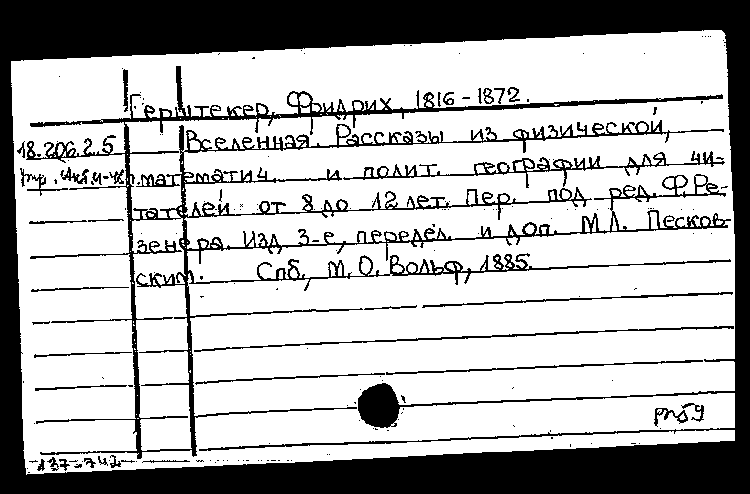 Герштекер, Фридрих, 1816-1872.
18.206.2.5 Вселенная. Рассказы из физической,
математич. и полит. географии для чи-
тателей от 8 до 12 лет. Пер. под ред. Ф. Ре-
зенера. Изд. 3-е, передел. и доп. М.Л. Песков-
ским. Спб., М.О. Вольф, 1885.
137-742